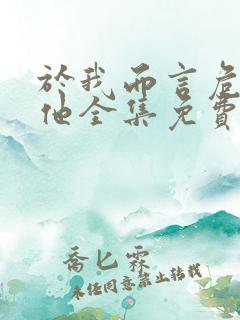 於我而言危
他全集免費
喬匕霖
未經同意禁止轉載